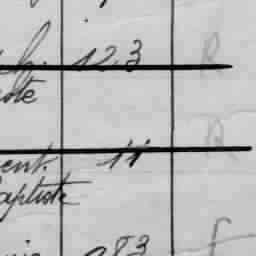 ch. 123 R
ote
ent. 11 R
aptiste
283 F